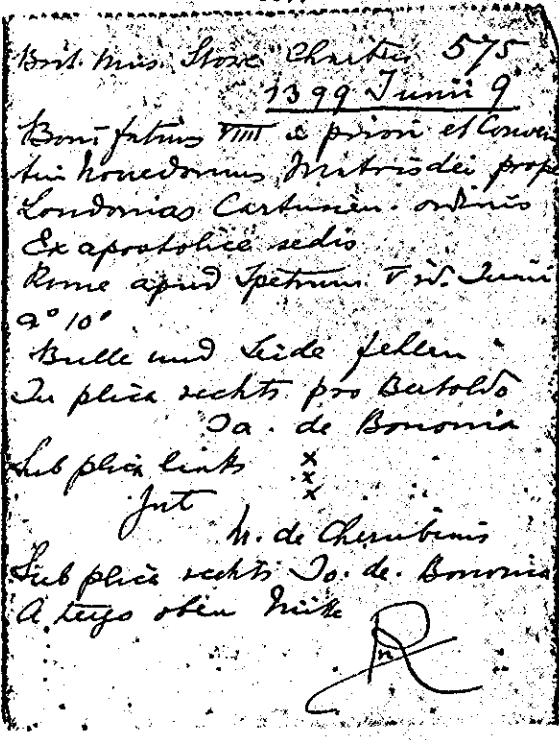 Brit. Mus. Stowe Charter 575
1399 Junii 9
Bonifatius VIIII priori et Conven
tui Matris dei prope
Londonias Cartusien. ordinis
Ex apostolice sedis
Rome apud Spetrum V id. Junii
a° 10°
Bulle und Seide fehlen
In plica rechts pro Bertoldo
Ja. de Bononia
Sub plica links x
x
x
Jul
N. de Cherubinis
Sub plica rechts Jo. de. Bononia
A tergo oben Mitte
R